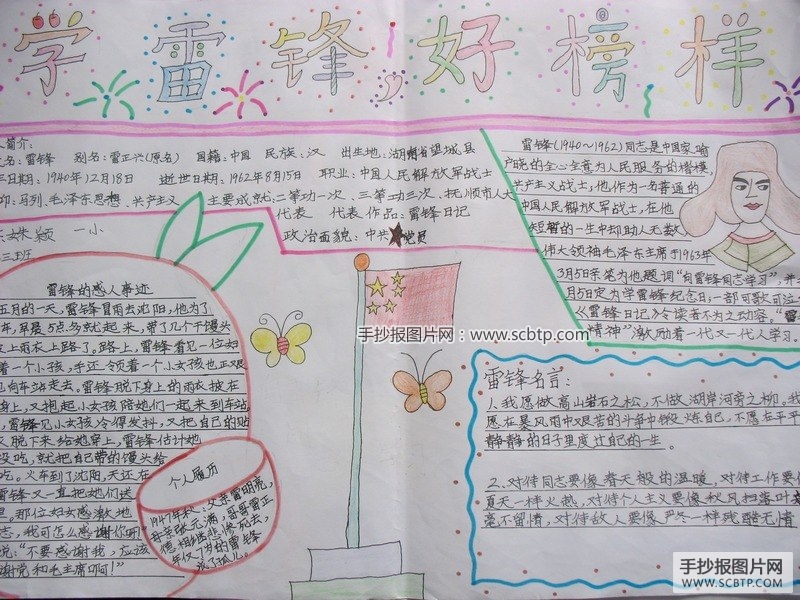 学雷锋好榜样
简介:
名:雷锋 别名:雷正兴(原名) 国籍:中国 民族:汉 出生地:湖南省望城县
日期:1940年12月18日 逝世日期:1962年8月15日 职业:中国人民解放军战士
仰:马列.毛泽东思想、共产主义 主要成就:二等功一次、三等功三次、抚顺市人大
代表 代表作品:雷锋日记
政治面貌:中共党员
姝颖 一小
三班
雷锋的感人事迹
五月的一天,雷锋冒雨去沈阳,他为了
车,早晨5点多就起来,带了几个干馒头
上雨衣上路了。路上,雷锋看见一位妇
着一个小孩,手还领着一个小女孩也正艰
向车站走去。雷锋脱下身上的雨衣披在
身上,又抱起小女孩陪她们一起来到车站
雷锋见小女孩冷得发抖,又把自己的贴
脱下来给她穿上,雷锋估计她
没吃,就把自己带的馒头给
吃。火车到了沈阳,天还在
雷锋又一直把她们送
那位妇女感激地
志,我可怎么感谢你啊
说:"不要感谢我,应该
谢党和毛主席啊!"
个人履历
1947年秋:父亲雷明亮,
母亲张元满,哥哥雷正
德相继悲惨死去,
年仅7岁的雷锋
成了孤儿。
雷锋(1940~1962)同志是中国家喻
户晓的全心全意为人民服务的楷模,
共产主义战士,他作为一名普通的
中国人民解放军战士,在他
短暂的一生中却助人无数
伟大领袖毛泽东主席于1963年
3月5日亲笔为他题词"向雷锋同志学习",并
月5日定为学雷锋纪念日;一部可歌可泣
《雷锋日记》令读者不为之动容。"雷
精神"激励着一代又一代人学习。
手抄报图片网:www.scbtp.com
雷锋名言:
1、我愿做高山岩石之松,不做湖岸河旁之柳,我
愿在暴风雨中艰苦的斗争中锻炼自己,不愿在平平
静静的日子里度过自己的一生。
2、对待同志要像春天般的温暖,对待工作要像
夏天一样火热,对待个人主义要像秋风扫落叶
毫不留情,对待敌人要像严冬一样残酷无情
手抄报图片网
WWW.SCBTP.COM